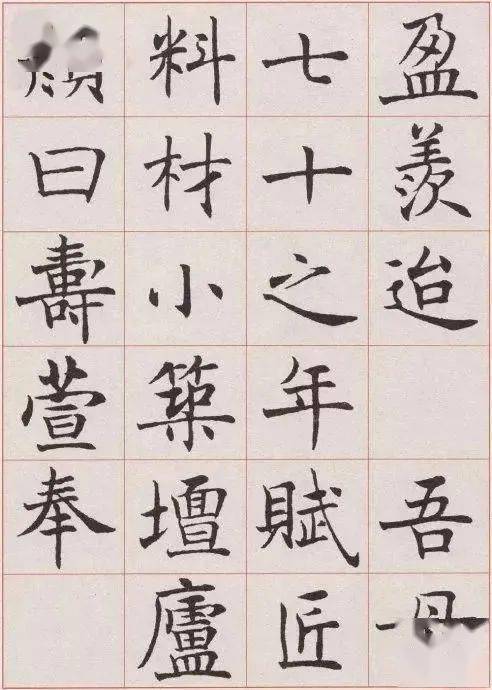 盈羨迨 吾
七十之年賦匠
料材小築壇廬
曰壽萱奉